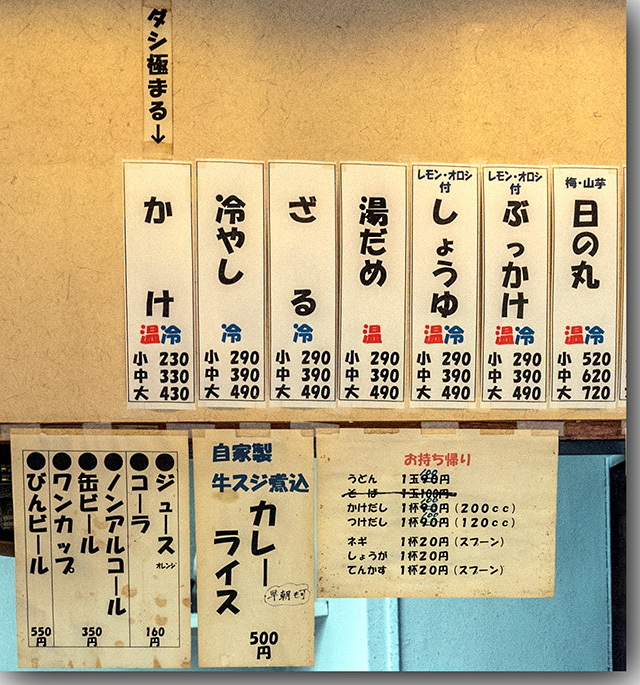 ダシ極まる↓
かけ
温冷
小 230
中 330
大 430
冷やし
冷
小 290
中 390
大 490
ざる
冷
小 290
中 390
大 490
湯だめ
温
小 290
中 390
大 490
レモン・オロシ
付
しょうゆ
温冷
小 290
中 390
大 490
レモン・オロシ
付
ぶっかけ
温冷
小 290
中 390
大 490
梅・山芋
日の丸
温冷
小 520
中 620
大 720
●ジュース オレンジ
●コーラ
160円
●ノンアルコール
●缶ビール
350円
●ワンカップ
●びんビール
550円
自家製
牛スジ煮込
カレー
ライス
早朝も可
500円
お持ち帰り
うどん 1玉100円
そば 1玉100円
かけだし 1杯100円(200cc)
つけだし 1杯100円(120cc)
ネギ 1杯20円(スプーン)
しょうが 1杯20円
てんかす 1杯20円(スプーン)